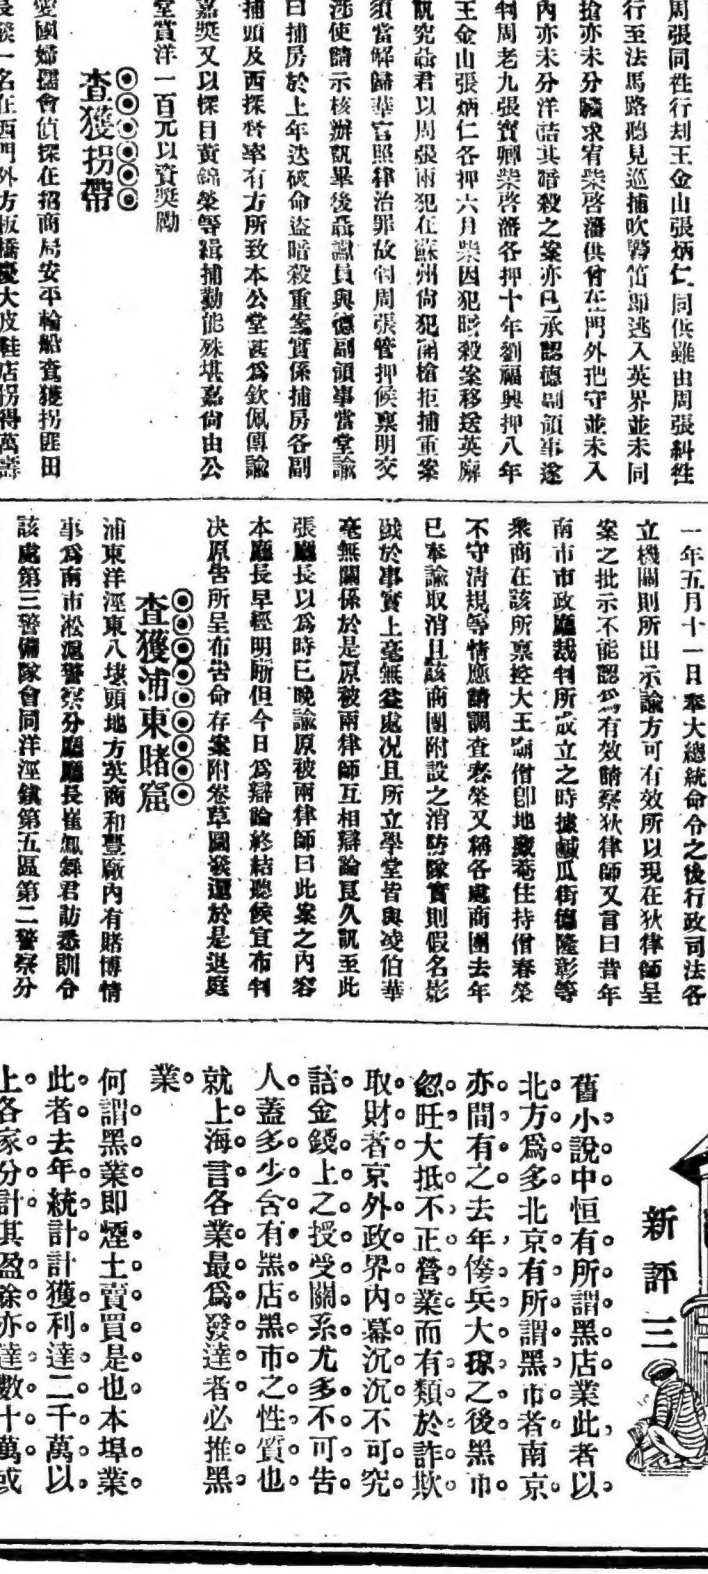 周張同性行刦王金山張炳仁同供雖由周張糾性
行至法馬路聽見巡捕吹警笛即逃入英界並未同
搶亦未分贓求宥柴啓瀋供曾在門外把守並未入
內亦未分洋詰其暗殺之案亦已承認德副領事遂
判周老九張寶卿柴啓瀋各押十年劉福興押八年
王金山張炳仁各押六月柴因犯暗殺案移送英廨
訊究君以周張兩犯在蘇州尙犯開槍拒捕重案
須當解歸華官照律治罪故判周張管押候禀明交
涉使請示核辦訊畢後聶讞員與德副領事當堂諭
曰捕房於上年迭破命盜暗殺重案實係捕房各副
捕頭及西探督率有方所致本公堂甚爲欽佩傳諭
嘉奬又以探目黃錦榮等緝捕勤能殊堪嘉尙由公
堂賞洋一百元以資奬勵
查獲拐帶
愛國婦孺會偵探在招商局安平輪船查獲拐匪田
長發一名在西門外方板橋慶大皮鞋店拐得萬壽
一年五月十一日奉大總統命令之後行政司法各
立機關則所出示諭方可有效所以現在狄律師呈
案之批示不能認爲有效請察狄律師又言曰昔年
南市市政廳裁判所成立之時據鹹瓜街德隆彰等
衆商在該所禀控大王廟僧卽地藏菴住持僧春榮
不守清規等情應請調查春榮又稱各處商團去年
已奉諭取消且該商團附設之消防隊實則假名影
戤於事實上毫無益處况且所立學堂皆與凌伯華
毫無關係於是原被兩律師互相辯論良久訊至此
張廳長以爲時已晚諭原被兩律師曰此案之內容
本廳長早經明瞭但今日爲辯論終結聽候宣布判
决原告所呈布吿命存案附卷草圖發還於是退庭
查獲浦東賭窟
浦東洋涇東八埭頭地方英商和豐廠內有賭博情
事爲南市淞滬警察分廳廳長崔鳳舞君訪悉訓令
該處第三警備隊會同洋涇鎭第五區第二警察分
新評三
舊小說中恒有所謂黑店業此者以
北方爲多北京有所謂黑市者南京
亦間有之去年傜兵大掠之後黑市
忽旺大抵不正營業而有類於詐欺
取財者京外政界內幕沉沉不可究
詰金錢上之授受關系尤多不可告
人蓋多少含有黑店黑市之性質也
就上海言各業最爲發達者必推黑
業
何謂黑業即煙土賣買是也本埠業
此者去年統計計獲利達二千萬以
上各家分計其盈餘亦達數十萬或